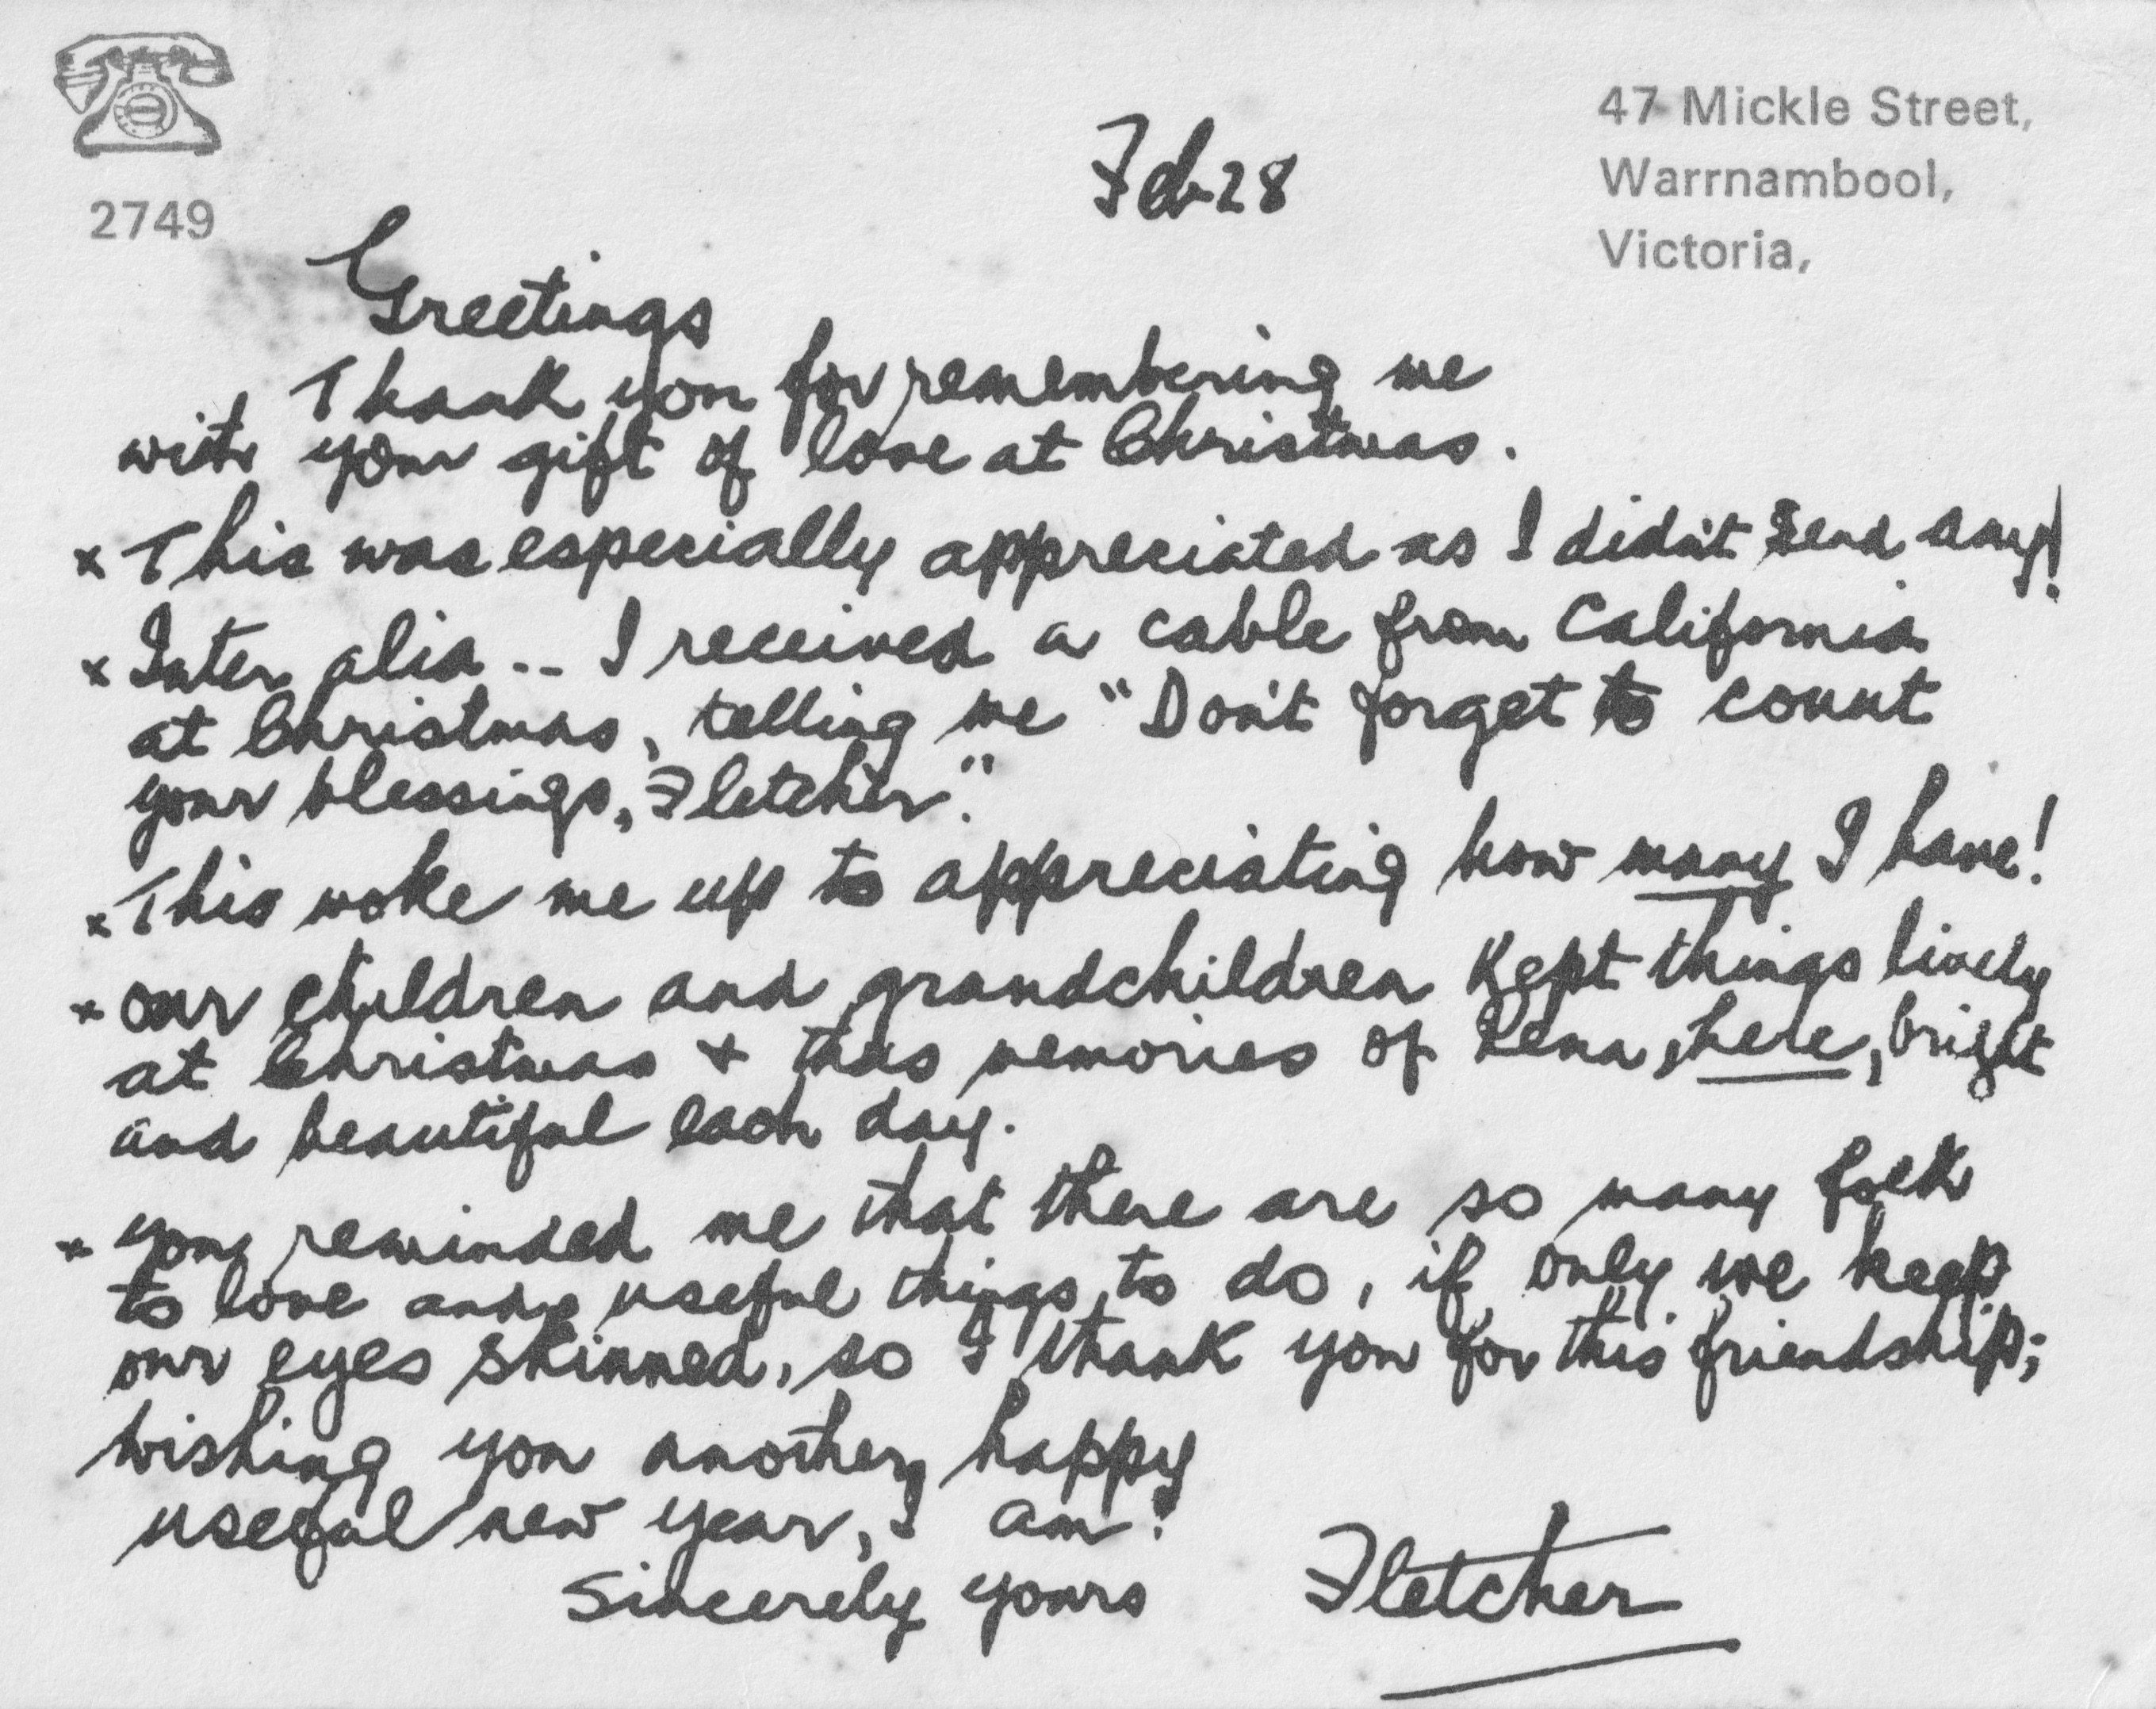 2749
47 Mickle Street,
Warrnambool,
Victoria,
Feb 28
Greetings
Thank you for remembering me
with your gift of love at Christmas.
x This was especially appreciated as I didn't send any!
x Inter alia -- I received a cable from California
at Christmas, telling me "Don't forget to count
your blessings, Fletcher."
x This woke me up to appreciating how many I have!
x our children and grandchildren kept things lively
at Christmas + thus memories of Rena, here, bright
and beautiful each day.
x you reminded me that there are so many folk
to love and useful things to do, if only we keep
our eyes skinned, so I thank you for this friendship;
wishing you another happy
useful new year, I am!
Sincerely yours Fletcher